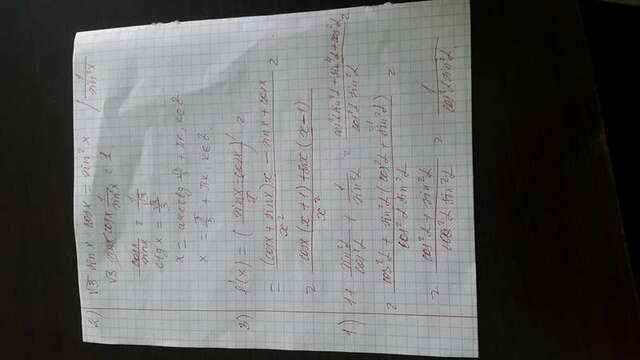 2) √3 sin x cos x = sin² x | 1/sin² x
√3 sin x cos x 1/sin² x = 1
cos x/sin x = 1/√3
ctg x = √3/3
x = arcctg √3/3 + πk, k∈Z
x = π/3 + πk k∈Z.
3) f'(x) = (sin x - cos x/x)' =
= (cos x + sin x)x - sin x + cos x/x² =
= cos x (x + 1) + sin x (x - 1)/x²
1) 1 + sin² α/cos² α + 1/sin² α = cos² α sin² α + sin⁴ α + cos² α/cos² α sin² α =
= cos² α + sin² α (cos² α + sin² α)/cos² α sin² α =
= cos² α + sin² α/cos² α sin² α = 1/cos² α sin² α.